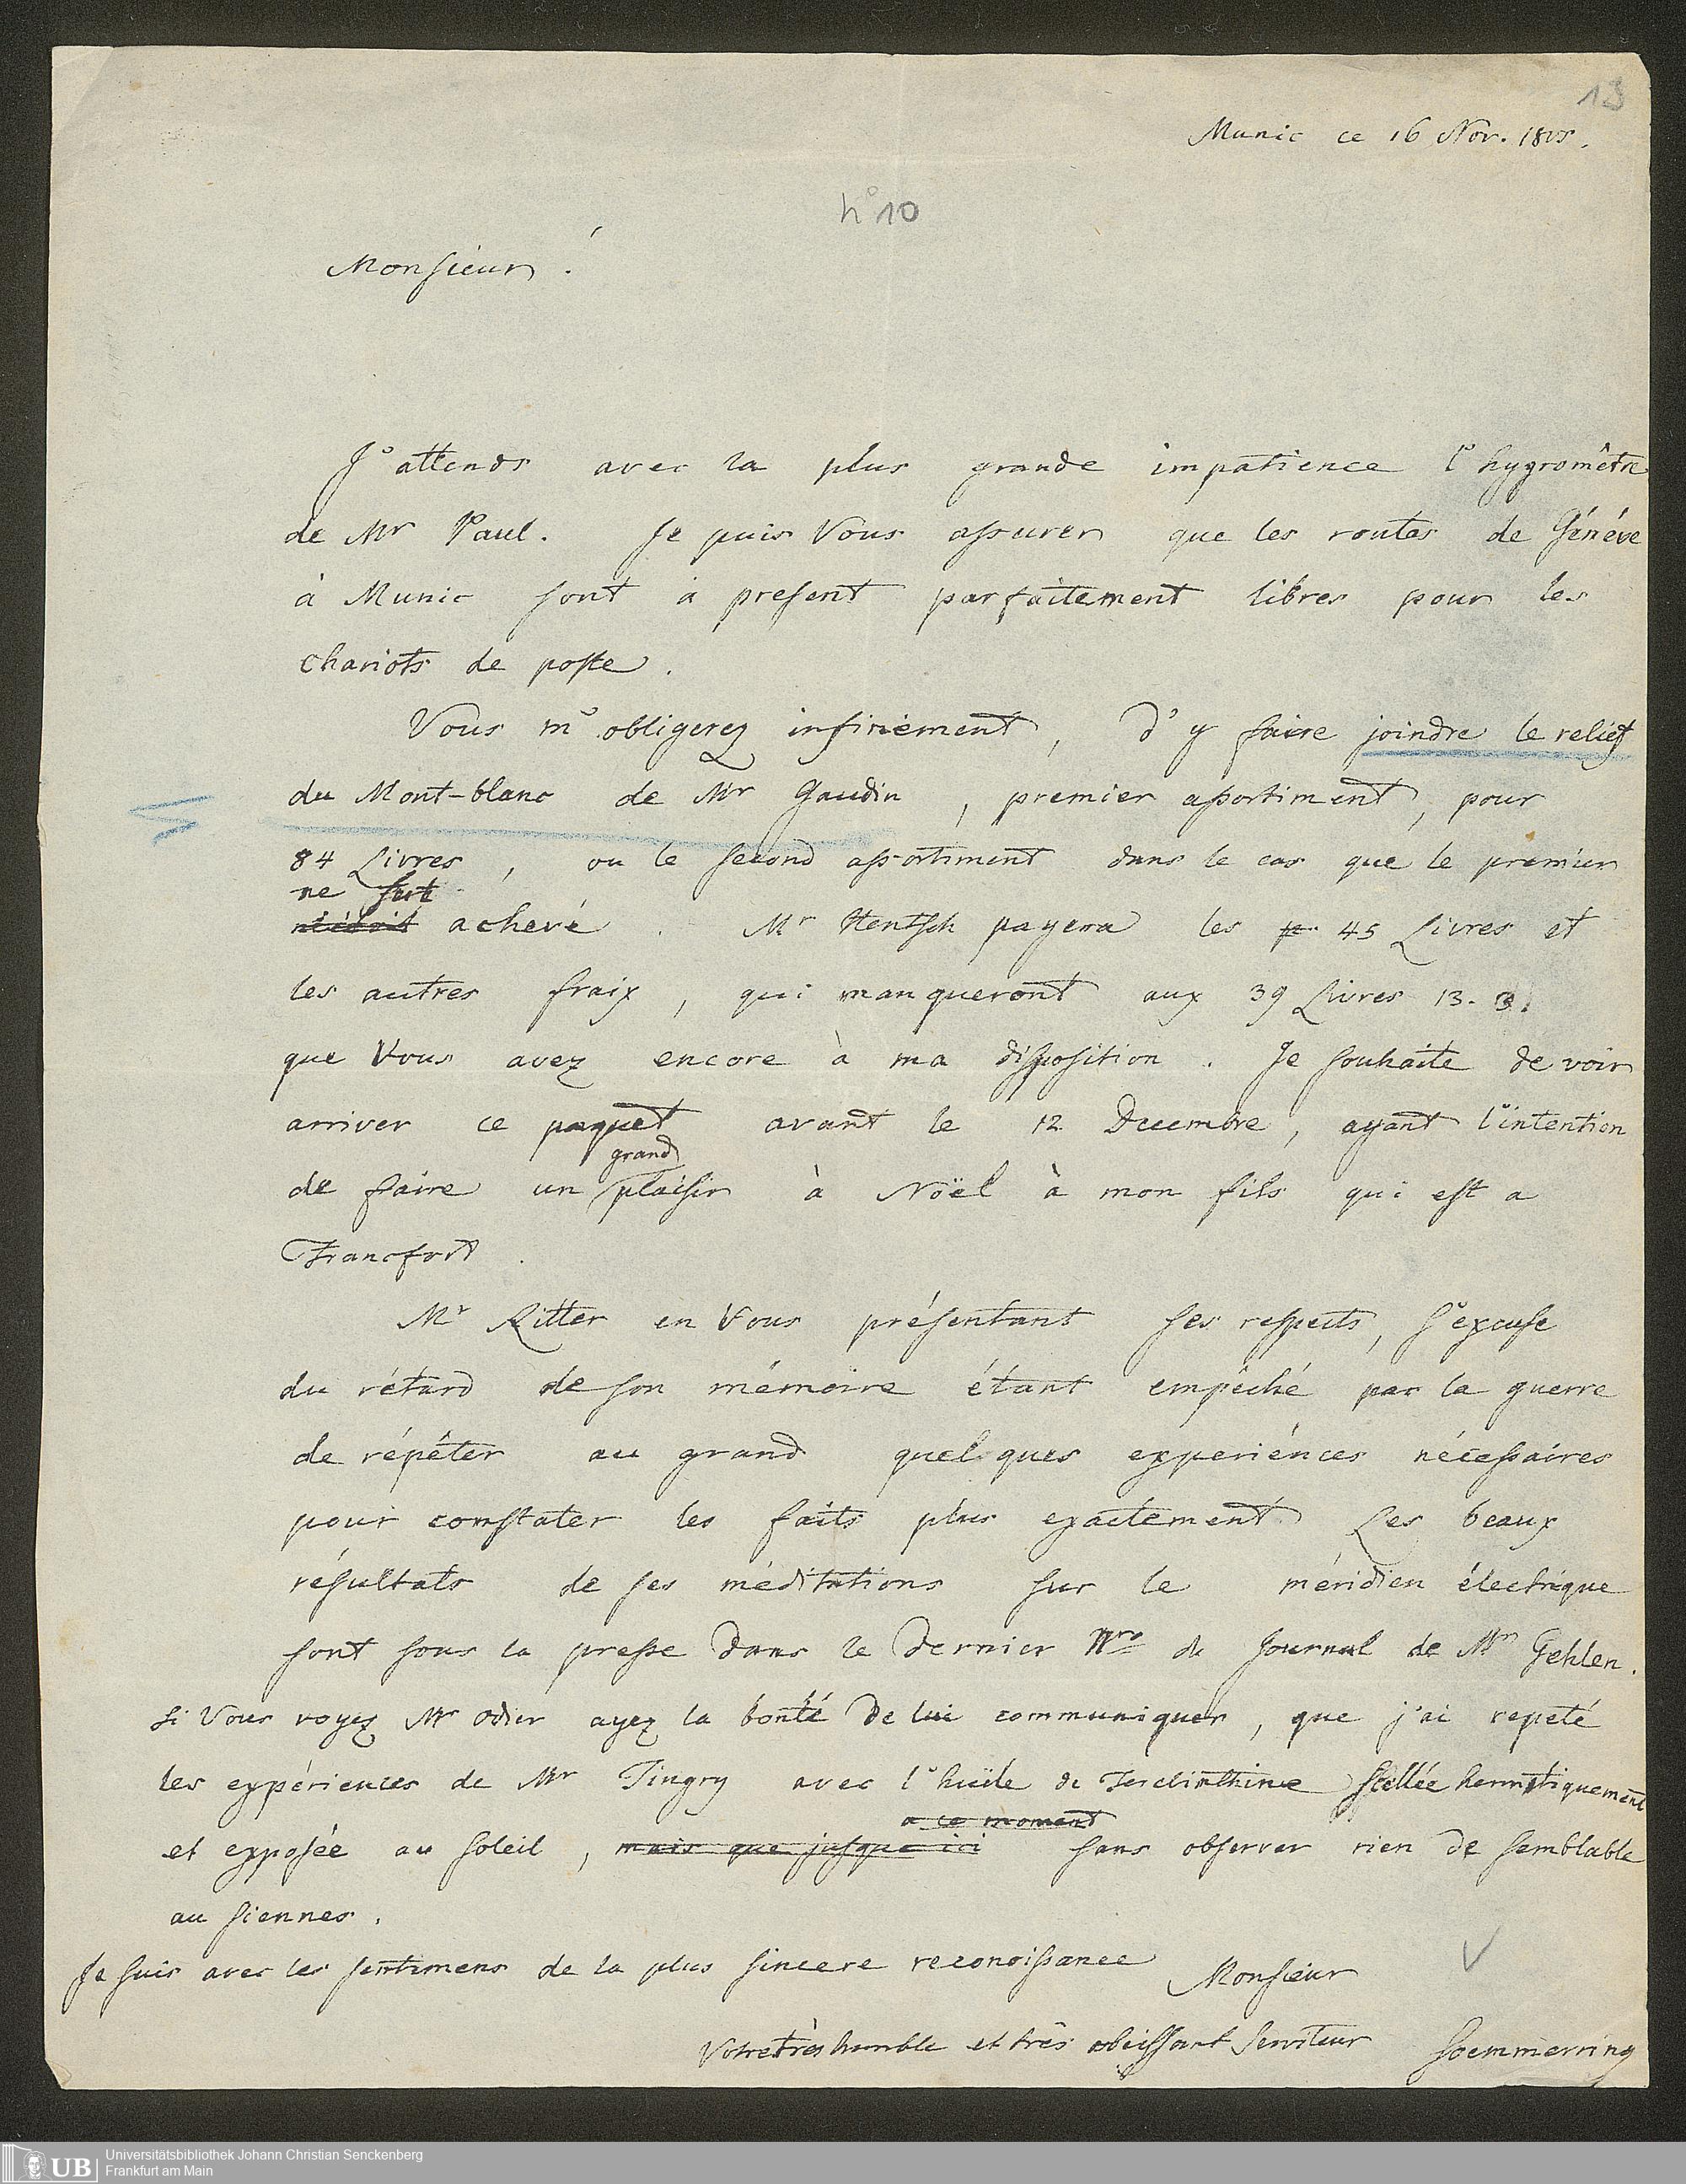 13
Munic ce 16 Nov. 1805.
n° 10
Monsieur!
J'attends avec la plus grande impatience l'hygromêtre
de Mr Paul. Je puis Vous assurer que les routes de Généve
à Munic sont à present parfaitement libres pour les
chariots de poste.
Vous m'obligerez infiniement, d'y faire joindre le relief
du Mont-blanc de Mr Gaudin, premier assortiment, pour
84 Livres, ou le second assortiment dans le cas que le premier
ne fut
achevé. Mr Hentsch payera les 45 Livres et
les autres fraix, qui manqueront aux 39 Livres 13. 3.
que Vous avez encore à ma disposition. Je souhaite de voir
arriver ce paquet avant le 12 Decembre, ayant l'intention
grand
de faire un plaisir à Noël à mon fils qui est a
Francfort.
Mr Ritter en Vous présentant ses respects, s'excuse
du rétard de son mémoire étant empêché par la guerre
de répêter au grand quelques experiénces nécessaires
pour constater les faits plus exactement. Les beaux
résultats de ses méditations sur le méridien électrique
sont sous la presse dans le dernier Nro du Journal de Mr Gehlen.
si Vous voyez Mr Odier ayez la bonté de lui communiquer, que j'ai repeté
les expériences de Mr Tingry avec l'huile de Terebinthine scellée hermetiquement
a ce moment
et exposée au soleil, mais que jusque ici sans observer rien de semblable
au siennes.
Je suis avec les sentimens de la plus sincere reconoissance Monsieur
Votre très humble et très obeissant serviteur Soemmerring
UB Universitätsbibliothek Johann Christian Senckenberg
Frankfurt am Main